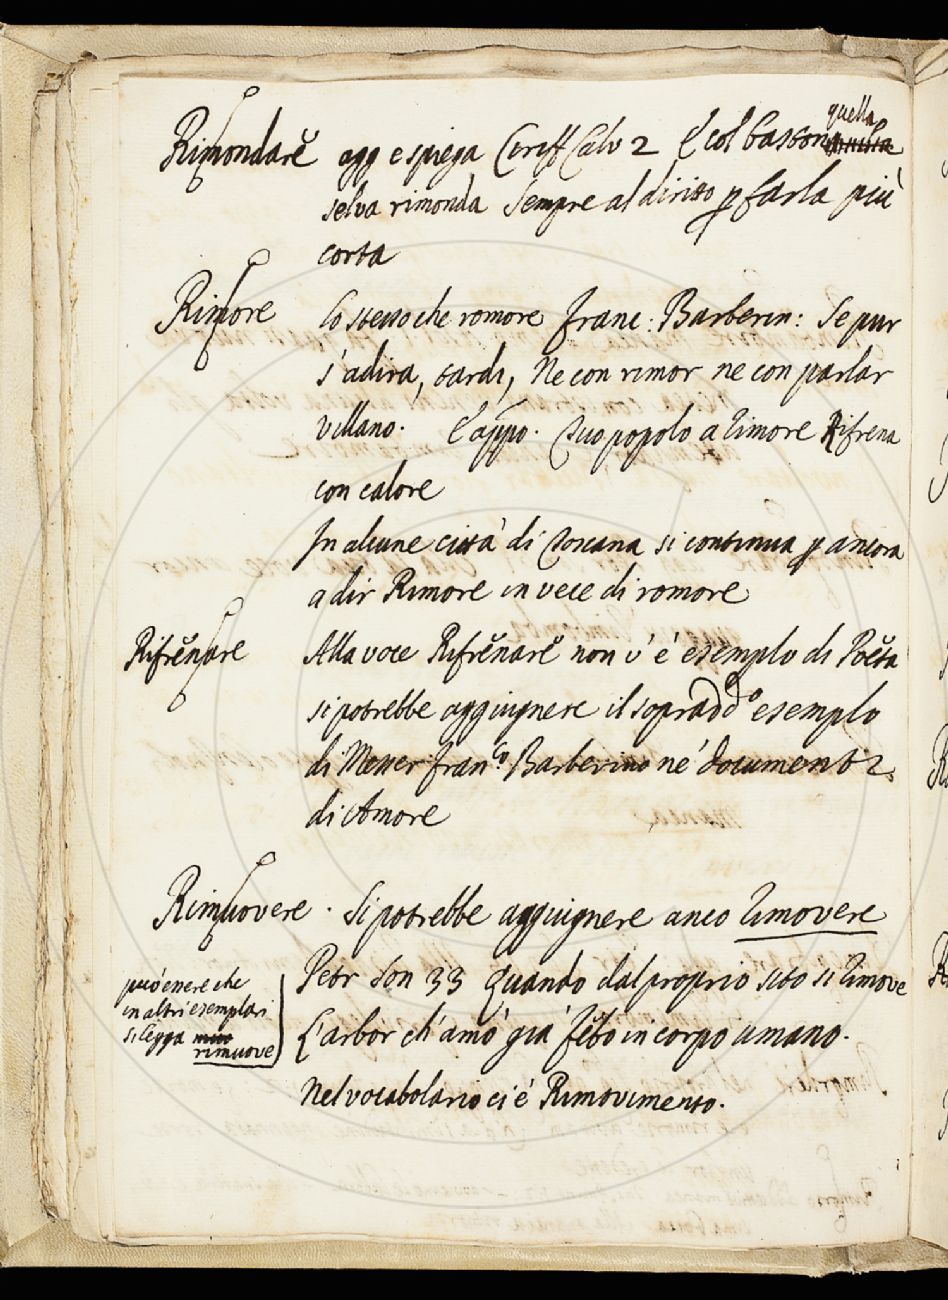 Rimondare agg e spiega Ciriff Calv 2 E col baston quella
selva rimonda Sempre al diritto p farla più
corta
Rimore Lo stesso che romore Franc: Barberin: Se pur
s'adira, tardi, Ne con rimor ne con parlar
villano. E appo. Suo popolo a Rimore Rifrena
con calore
In alcune città di Toscana si continua p ancora
a dir Rimore in vece di romore
Rifrenare Alla voce Rifrenare non v'è esemplo di Poeta
si potrebbe aggiugnere il sopradd.o esemplo
di Messer Fran.co Barberino né documenti
di Amore
Rimuovere . Si potrebbe aggiugnere anco Rimovere
Petr Son 33 Quando dal proprio sito si Rimove
L'arbor ch'amò già Febo in corpo umano.
Nel vocabolario ci è Rimovimento.
può essere che
in altri esemplari
si legga
rimuove